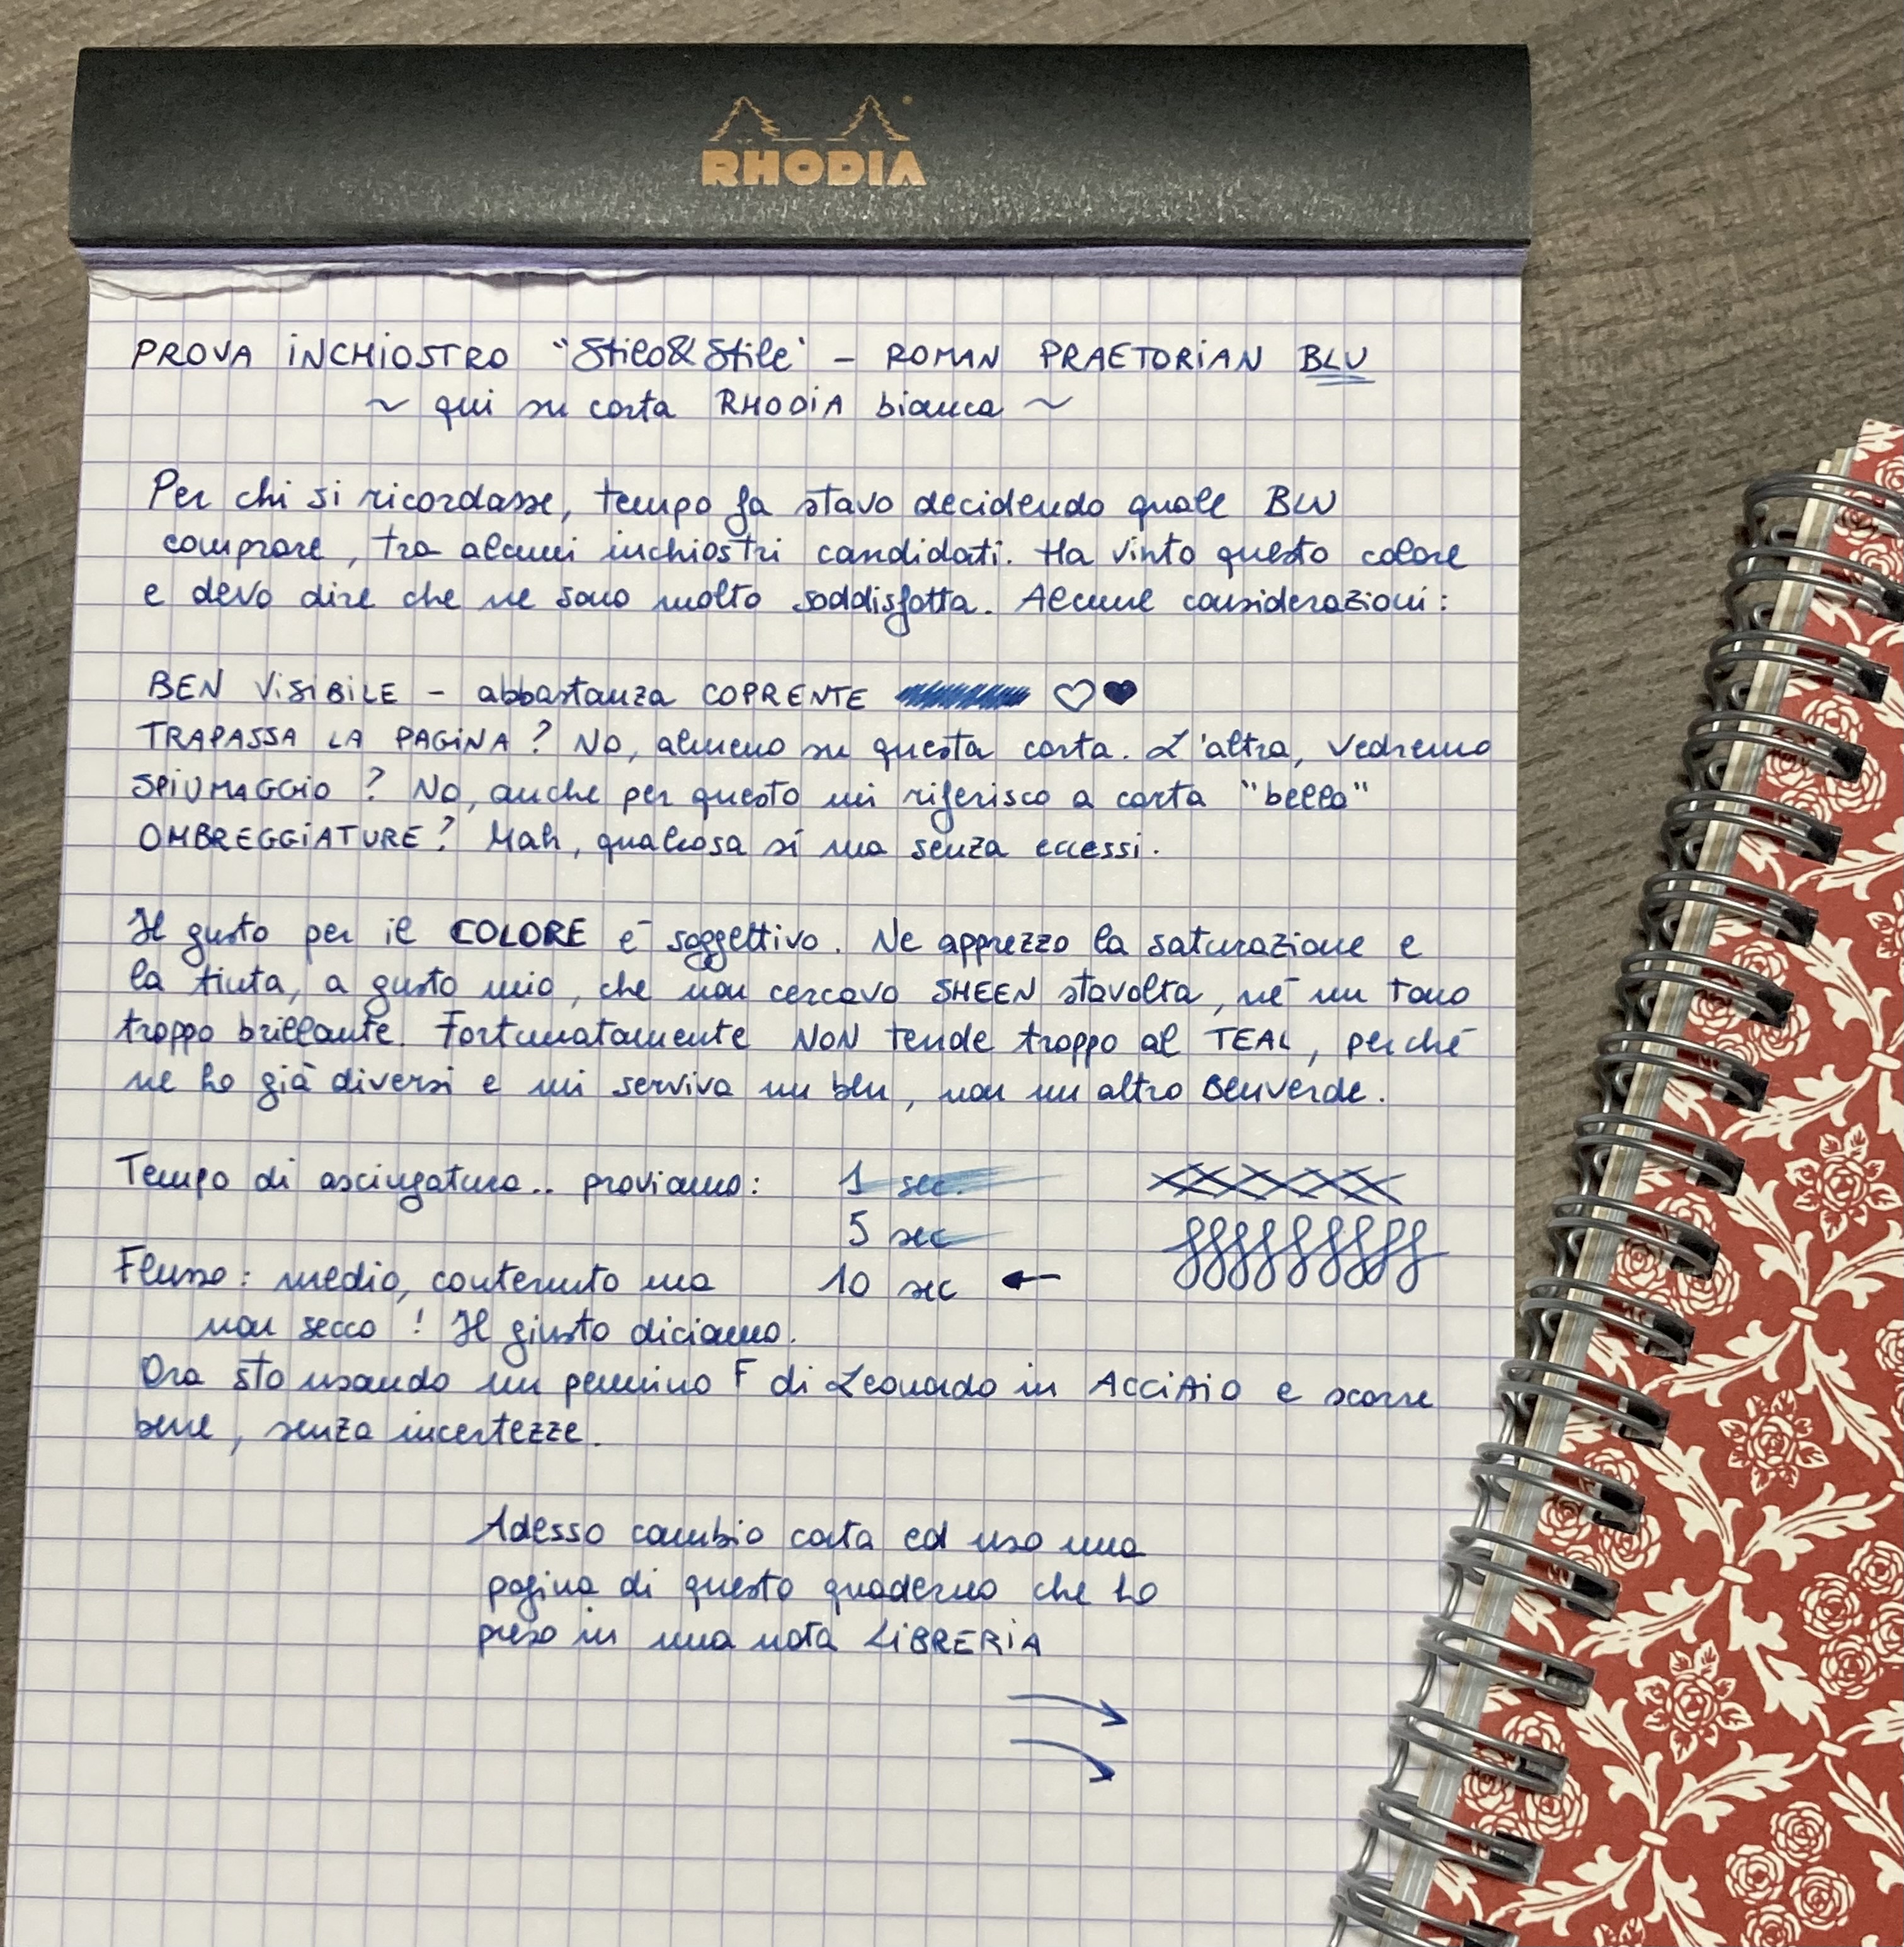 RHODIA
PROVA INCHIOSTRO "Stilo&Stile" - ROMAN PRAETORIAN BLU
~ qui su carta RHODIA bianca ~
Per chi si ricordasse, tempo fa stavo decidendo quale BLU
comprare, tra alcuni inchiostri candidati. Ha vinto questo colore
e devo dire che ne sono molto soddisfatta. Alcune considerazioni:
BEN VISIBILE - abbastanza COPRENTE
TRAPASSA LA PAGINA? No, almeno su questa carta. L'altra, vedremo
SPIUMAGGIO? No, anche per questo mi riferisco a carta "bella"
OMBREGGIATURE? Mah, qualcosa sí ma senza eccessi.
Il gusto per il COLORE é soggettivo. Ne apprezzo la saturazione e
la tinta, a gusto mio, che non cercavo SHEEN stavolta, né un tono
troppo brillante. Fortunatamente NON tende troppo al TEAL, perché
ne ho già diversi e mi serviva un blu, non un altro Bluverde.
Tempo di asciugatura.. proviamo: 1 sec.
5 sec
Flusso: medio, contenuto ma 10 sec ←
non secco! Il giusto diciamo.
Ora sto usando un pennino F di Leonardo in ACCIAIO e scorre
bene, senza incertezze.
Adesso cambio carta ed uso una
pagina di questo quaderno che ho
preso in una nota LIBRERIA